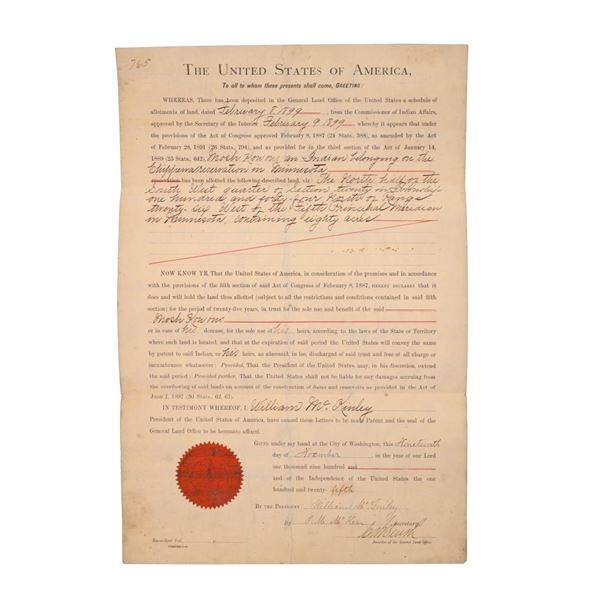 765
THE UNITED STATES OF AMERICA,
To all to whom these presents shall come, GREETING:
WHEREAS, There has been deposited in the General Land Office of the United States a schedule of
allotments of land, dated February 8, 1899, from the Commissioner of Indian Affairs,
approved by the Secretary of the Interior February 9, 1899, whereby it appears that under
the provisions of the Act of Congress approved February 8, 1887 (24 Stat., 388), as amended by the Act
of February 28, 1891 (26 Stat., 794), and as provided for in the third section of the Act of January 14,
1889 (25 Stat., 642), an Indian belonging on the
Chippewa reservation in Minnesota
has been allotted the following described land, viz: The North half of the
South West quarter of Section twenty in Township
one hundred and forty-four North of Range
twenty-six West of the Fifth Principal Meridian
in Minnesota, containing eighty acres
NOW KNOW YE, That the United States of America, in consideration of the premises and in accordance
with the provisions of the fifth section of said Act of Congress of February 8, 1887, HEREBY DECLARES that it
does and will hold the land thus allotted (subject to all the restrictions and conditions contained in said fifth
section) for the period of twenty-five years, in trust for the sole use and benefit of the said
or in case of his decease, for the sole use of his heirs, according to the laws of the State or Territory
where such land is located, and that at the expiration of said period the United States will convey the same
by patent to said Indian, or his heirs, as aforesaid, in fee, discharged of said trust and free of all charge or
incumbrance whatsoever: Provided, That the President of the United States may, in his discretion, extend
the said period: Provided further, That the United States shall not be liable for any damages accruing from
the overflowing of said lands on account of the construction of dams and reservoirs as provided in the Act of
June 7, 1897 (30 Stat., 62, 67).
IN TESTIMONY WHEREOF, I, William McKinley
President of the United States of America, have caused these Letters to be made Patent and the seal of the
General Land Office to be hereunto affixed.
GIVEN under my hand at the City of Washington, this Nineteenth
day of November in the year of our Lord
one thousand nine hundred and
and of the Independence of the United States the one
hundred and twenty-fifth
BY THE PRESIDENT: William McKinley
by Secretary
Recorder of the General Land Office
Recorded Vol.